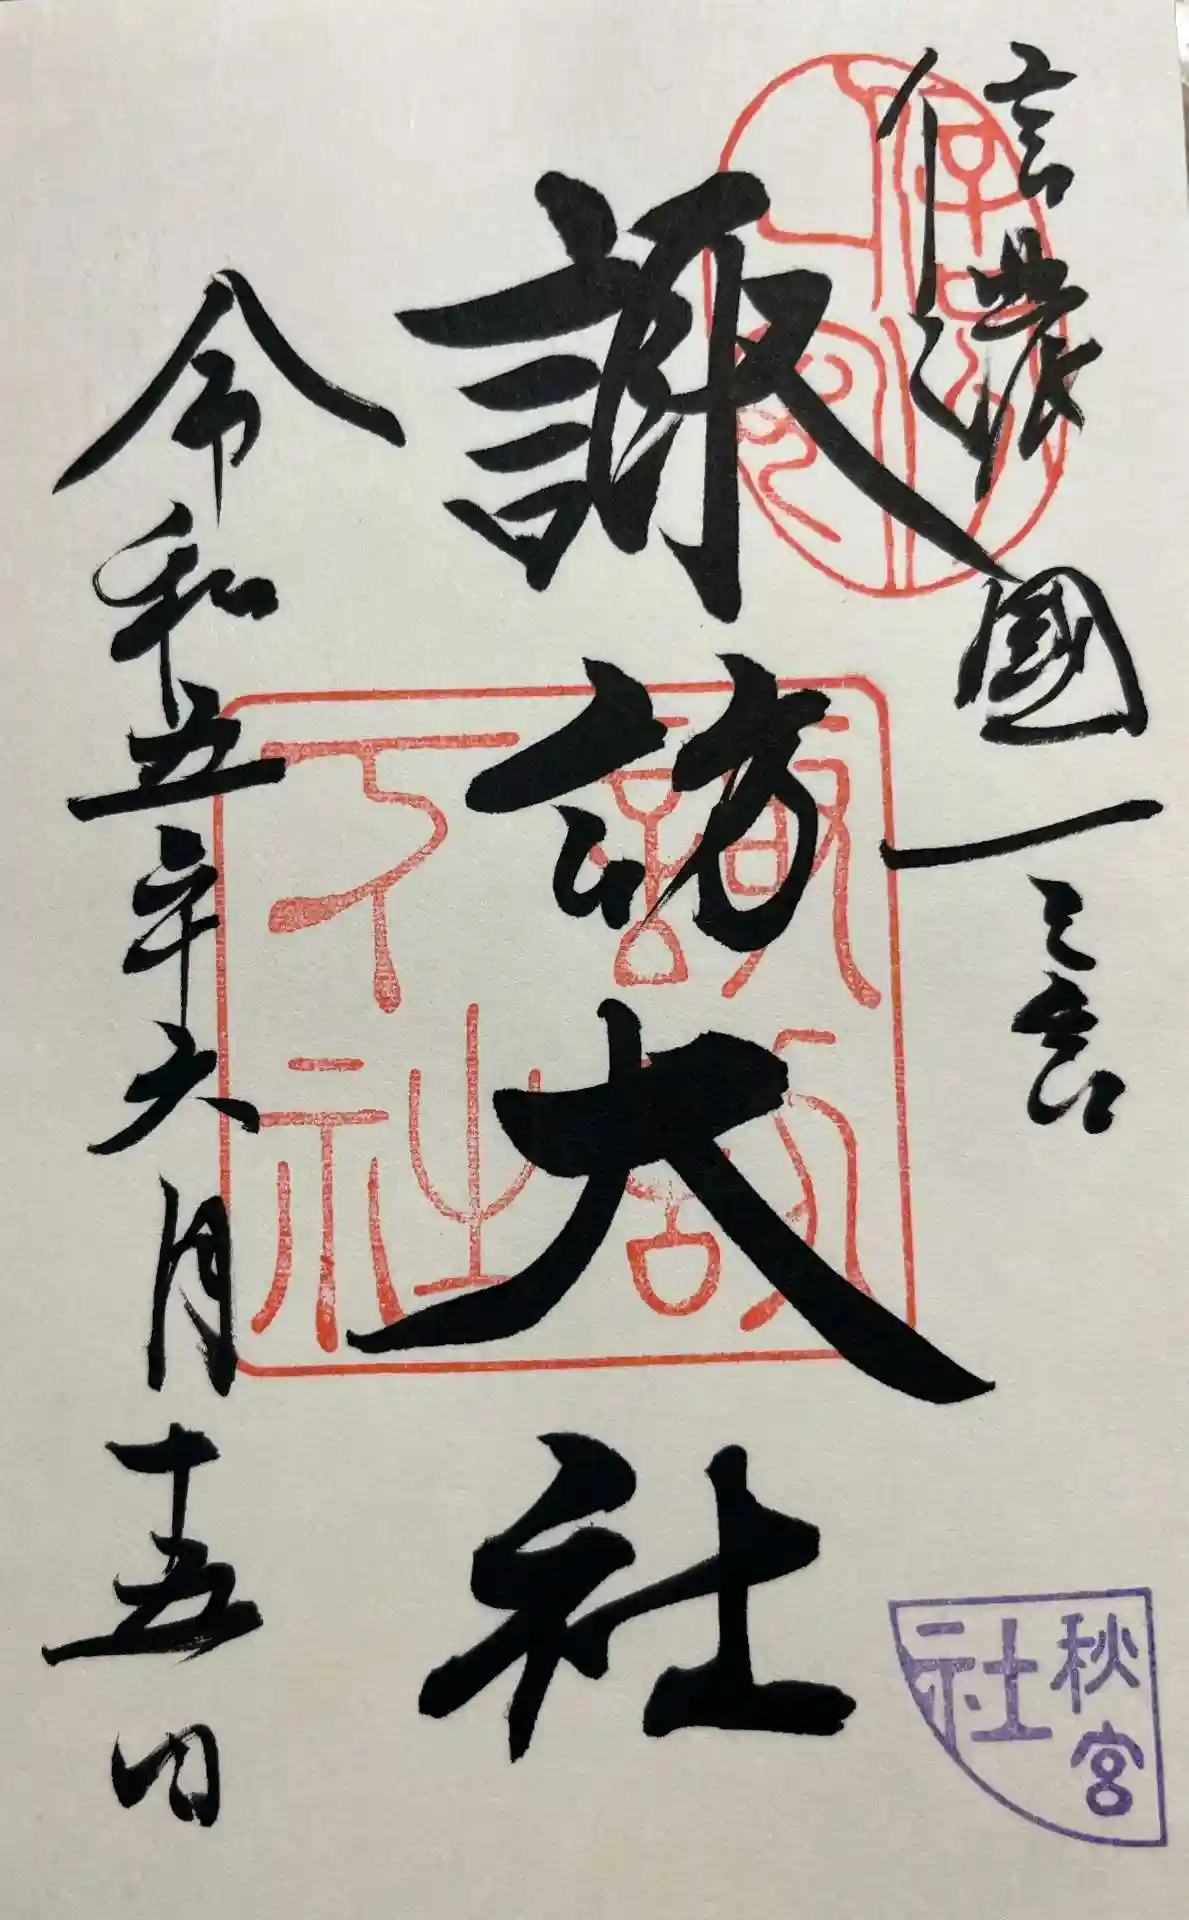 信濃國一之宮
諏訪大社
令和五年六月十五日
諏訪
宮
下社
秋宮
社